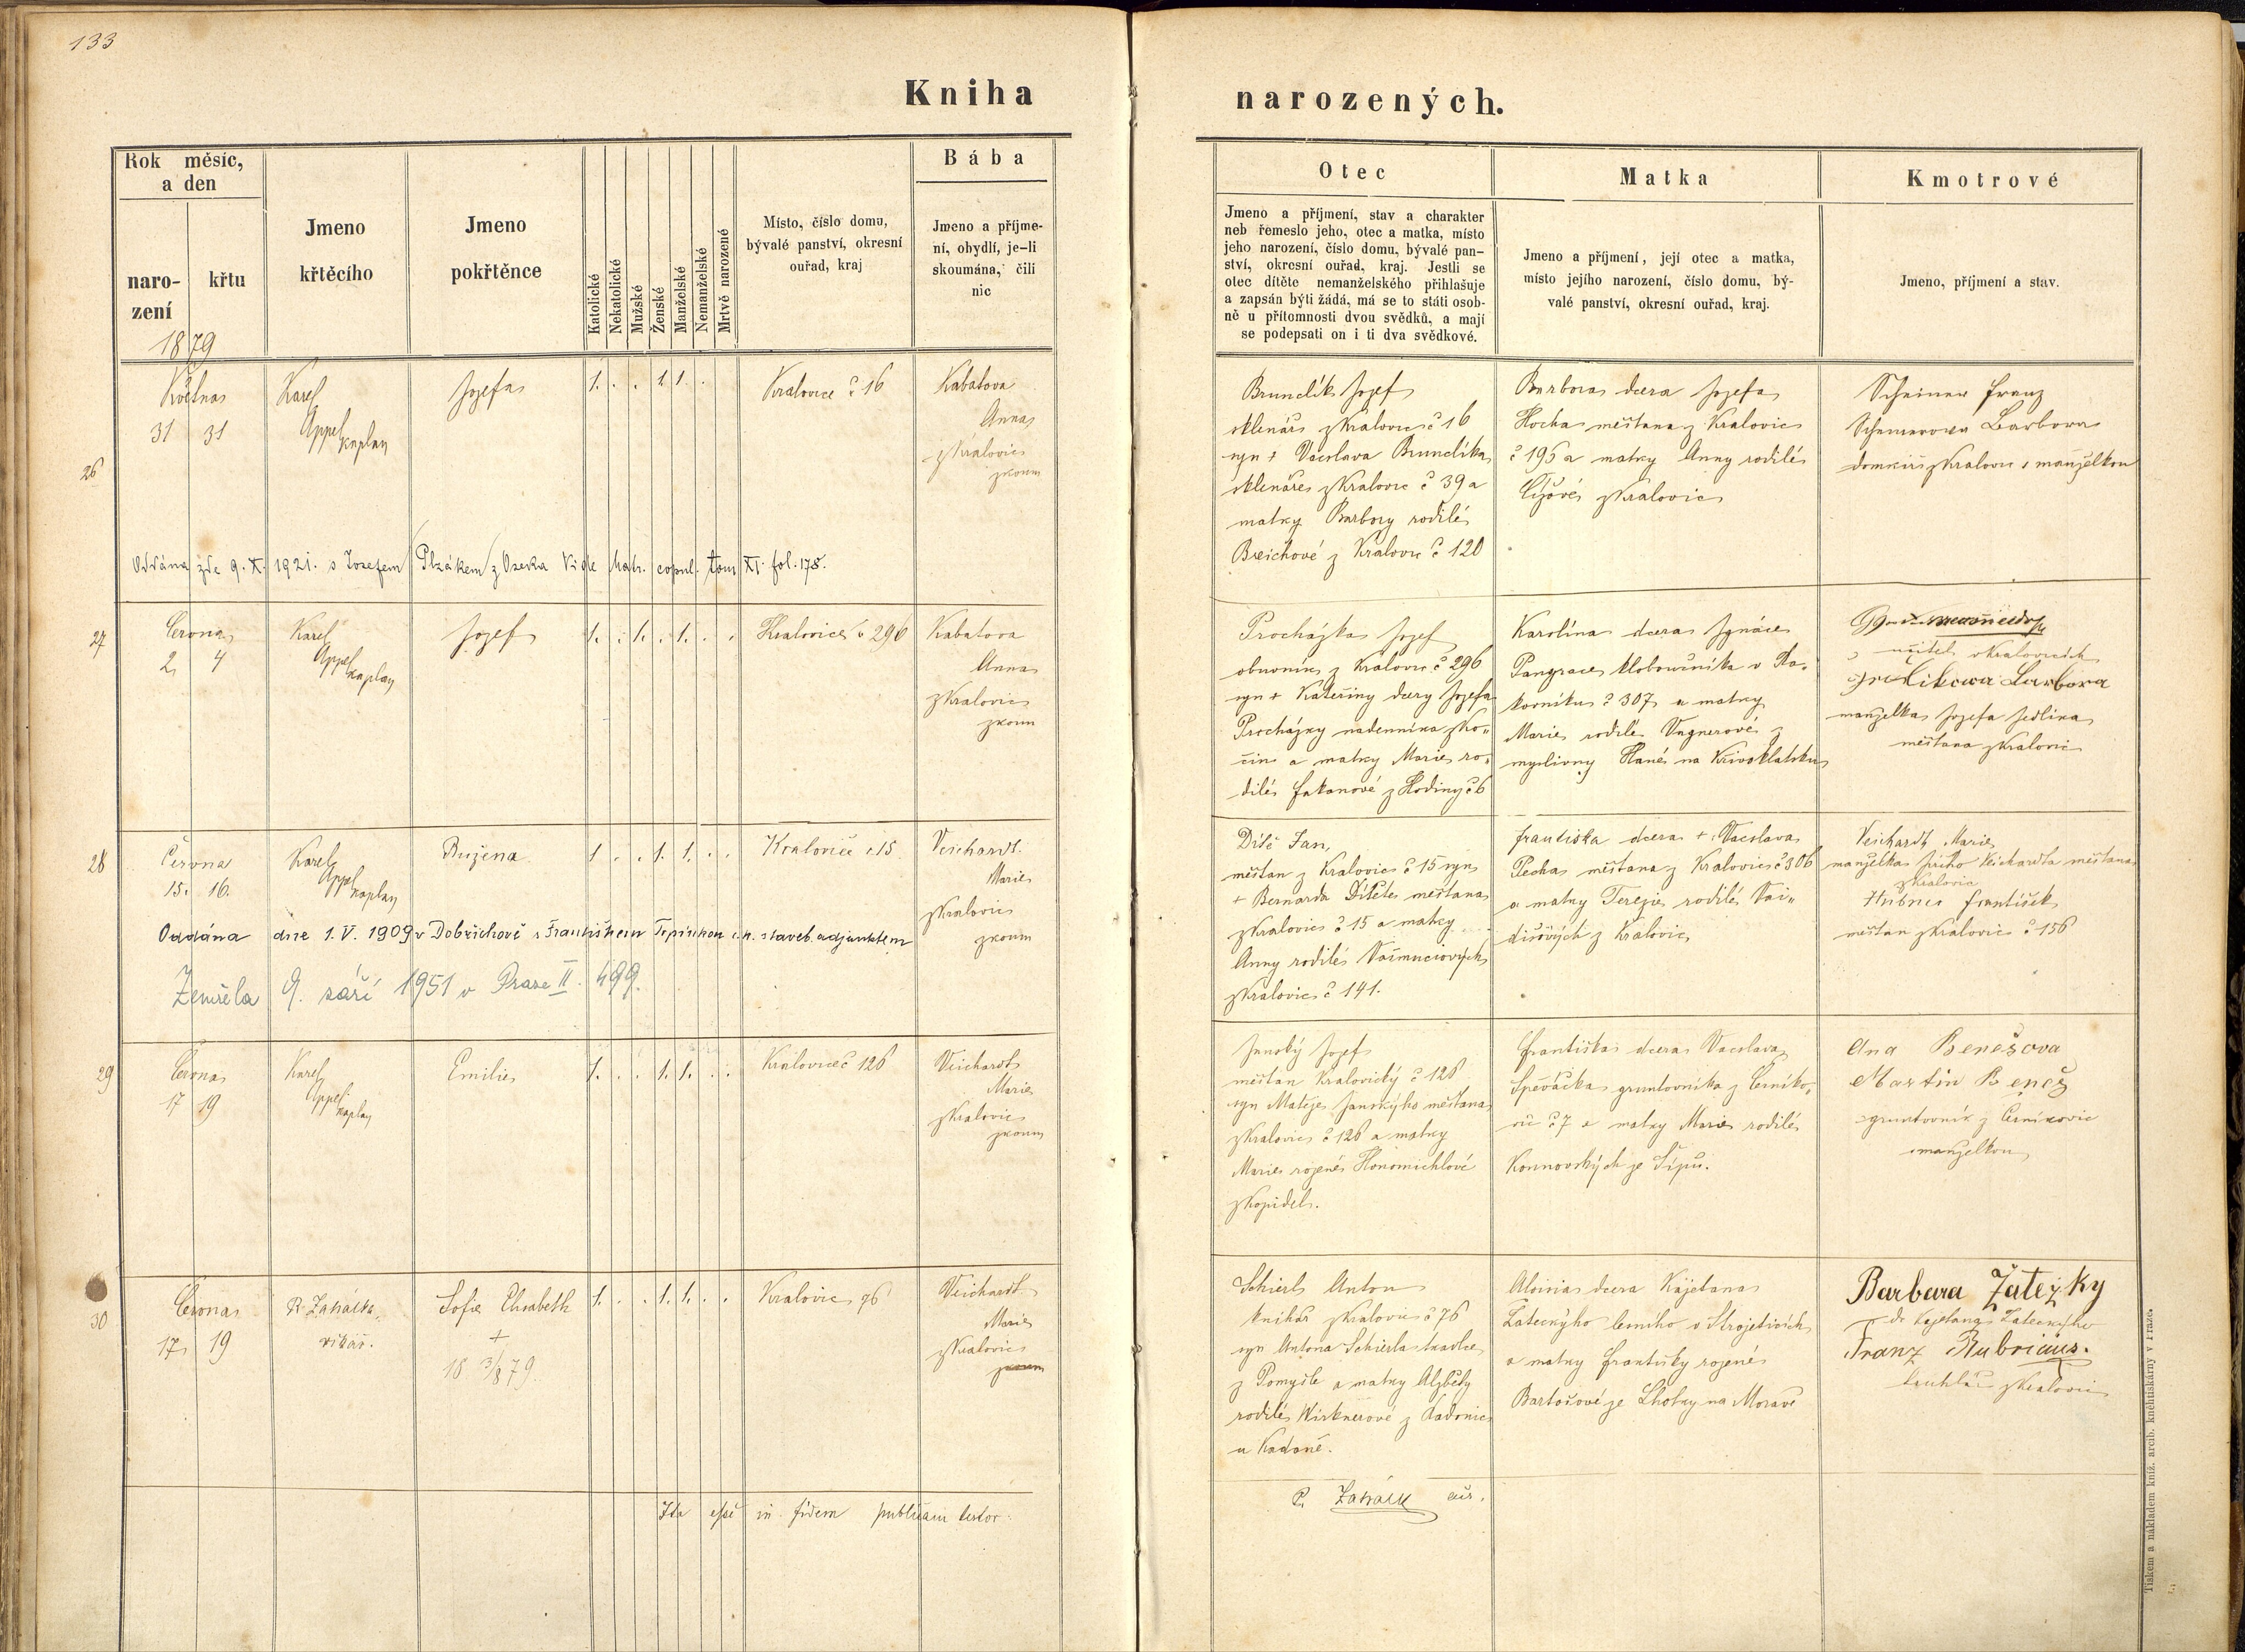 133
Kniha narozených.
Rok měsíc, a den
narození
křtu
1879
Jmeno křtěcího
Jmeno pokřtěnce
Katolické
Nekatolické
Mužské
Ženské
Manželské
Nemanželské
Mrtvě narozené
Místo, číslo domu,
bývalé panství, okresní
ouřad, kraj
Bába
Jmeno a příjme-
ní, obydlí, je-li
skoumána, čili
nic
Otec
Jmeno a příjmení, stav a charakter
neb řemeslo jeho, otec a matka, místo
jeho narození, číslo domu, bývalé pan-
ství, okresní ouřad, kraj. Jestli se
otec dítěte nemanželského přihlašuje
a zapsán býti žádá, má se to státi osob-
ně u přítomnosti dvou svědků, a mají
se podepsati on i ti dva svědkové.
Matka
Jmeno a příjmení, její otec a matka,
místo jejího narození, číslo domu, bý-
valé panství, okresní ouřad, kraj.
Kmotrové
Jmeno, příjmení a stav.
26
Května
31 31
Karel
Appel
kaplan
Josefa
1. . . 1. 1. .
Kralovice č 16
Kabatova
Anna
z Kralovic
zkoum
Brunclík Josef
sklenář z Kralovic č 16
syn + Vácslava Brunclíka
sklenáře z Kralovic č 39 a
matky Barbory rodilé
z Kralovic č 120
Barbora dcera Josefa
Hocha měštana z Kralovic
č 195 a matky Anny rodilé
Čížové z Kralovic
Scheiner Franz
Barbora
domkář z Kralovic s manželkou
Oddána zde 9. X. 1921. s Josefem Plzákem z Oseka Vide Matr. copul. tom XI. fol. 178.
27
Června
2 4
Karel
Appel
kaplan
Josef
1. . 1. . 1. . .
Kralovice č 296
Kabatova
Anna
z Kralovic
zkoum
Procházka Josef
obuvník z Kralovic č 296
syn + Kateřiny dcery Josefa
Procházky nádenníka z Ko-
čína a matky Marie ro-
dilé Fakanové z Hodiny č 6
Karolína dcera Ignáce
Pangrace kloboučníka v Ra-
kovníku č 307 a matky
Marie rodilé Vagnerové z
myslivny Hané na Křivoklátsku
učitel v Kralovicích
Jedlikova Barbora
manželka Josefa Jedlika
měštana z Kralovic
28
Června
15. 16.
Karel
Appel
kaplan
Bužena
1 . . 1. 1. . .
Kralovice č 15
Veichardt
Marie
z Kralovic
zkoum
Dítě Jan,
měštan z Kralovic č 15 syn
+ Bernarda Dítěte měštana
z Kralovic č 15 a matky
Anny rodilé
z Kralovic č 141.
Františka dcera + Vácslava
Pecha měštana z Kralovic č 306
a matky Terezie rodilé Vai-
dišových z Kralovic
Veichardt Marie
manželka Veichardta měštana
z Kralovic
Hübner František
měštan z Kralovic č 156
Oddána dne 1. V. 1909 v Dobřichově s Františkem staveb. adjunktem
Zemřela 9. září 1951 v Praze II. 499.
29
Června
17 19
Karel
Appel
kaplan
Emilie
1. . . 1. 1. . .
Kralovice č 126
Veichardt
Marie
z Kralovic
zkoum
Janský Josef
měštan Kralovický č 126
syn Matěje Janskýho měštana
z Kralovic č 126 a matky
Marie rozené Honomichlové
z Kopidel.
Františka dcera Vácslava
Spěváčka gruntovníka z Černíko-
vic č 7 a matky Marie rodilé
Konnovských ze Šípů.
Ana Benešova
Martin Beneš
gruntovník z Černíkovic
s manželkou
30
Června
17 19
P. Zahálka,
vikář.
Sofie Elisabeth
+
18 3/8 79.
1. . . 1. 1. . .
Kralovic 76
Veichardt
Marie
z Kralovic
zkoum
Schierl Anton
knihař z Kralovic č 76
syn Antona Schierla tkadlce
z Pomyšle a matky Alžběty
rodilé Wirknerové z Radonic
u Kadaně.
Aloisia dcera Kajetana
Žateckýho lesního v Strojeticích
a matky Františky rozené
Bartošové ze Lhotky na Moravě
Barbara Žatezky
Kajetana Žateckýho
Franz Rubricius.
truhlář z Kralovic
Ita esse in fidem publicam testor:
P. Zahálk vik.
Tiskem a nákladem kníž. arcib. knihtiskárny v Praze.